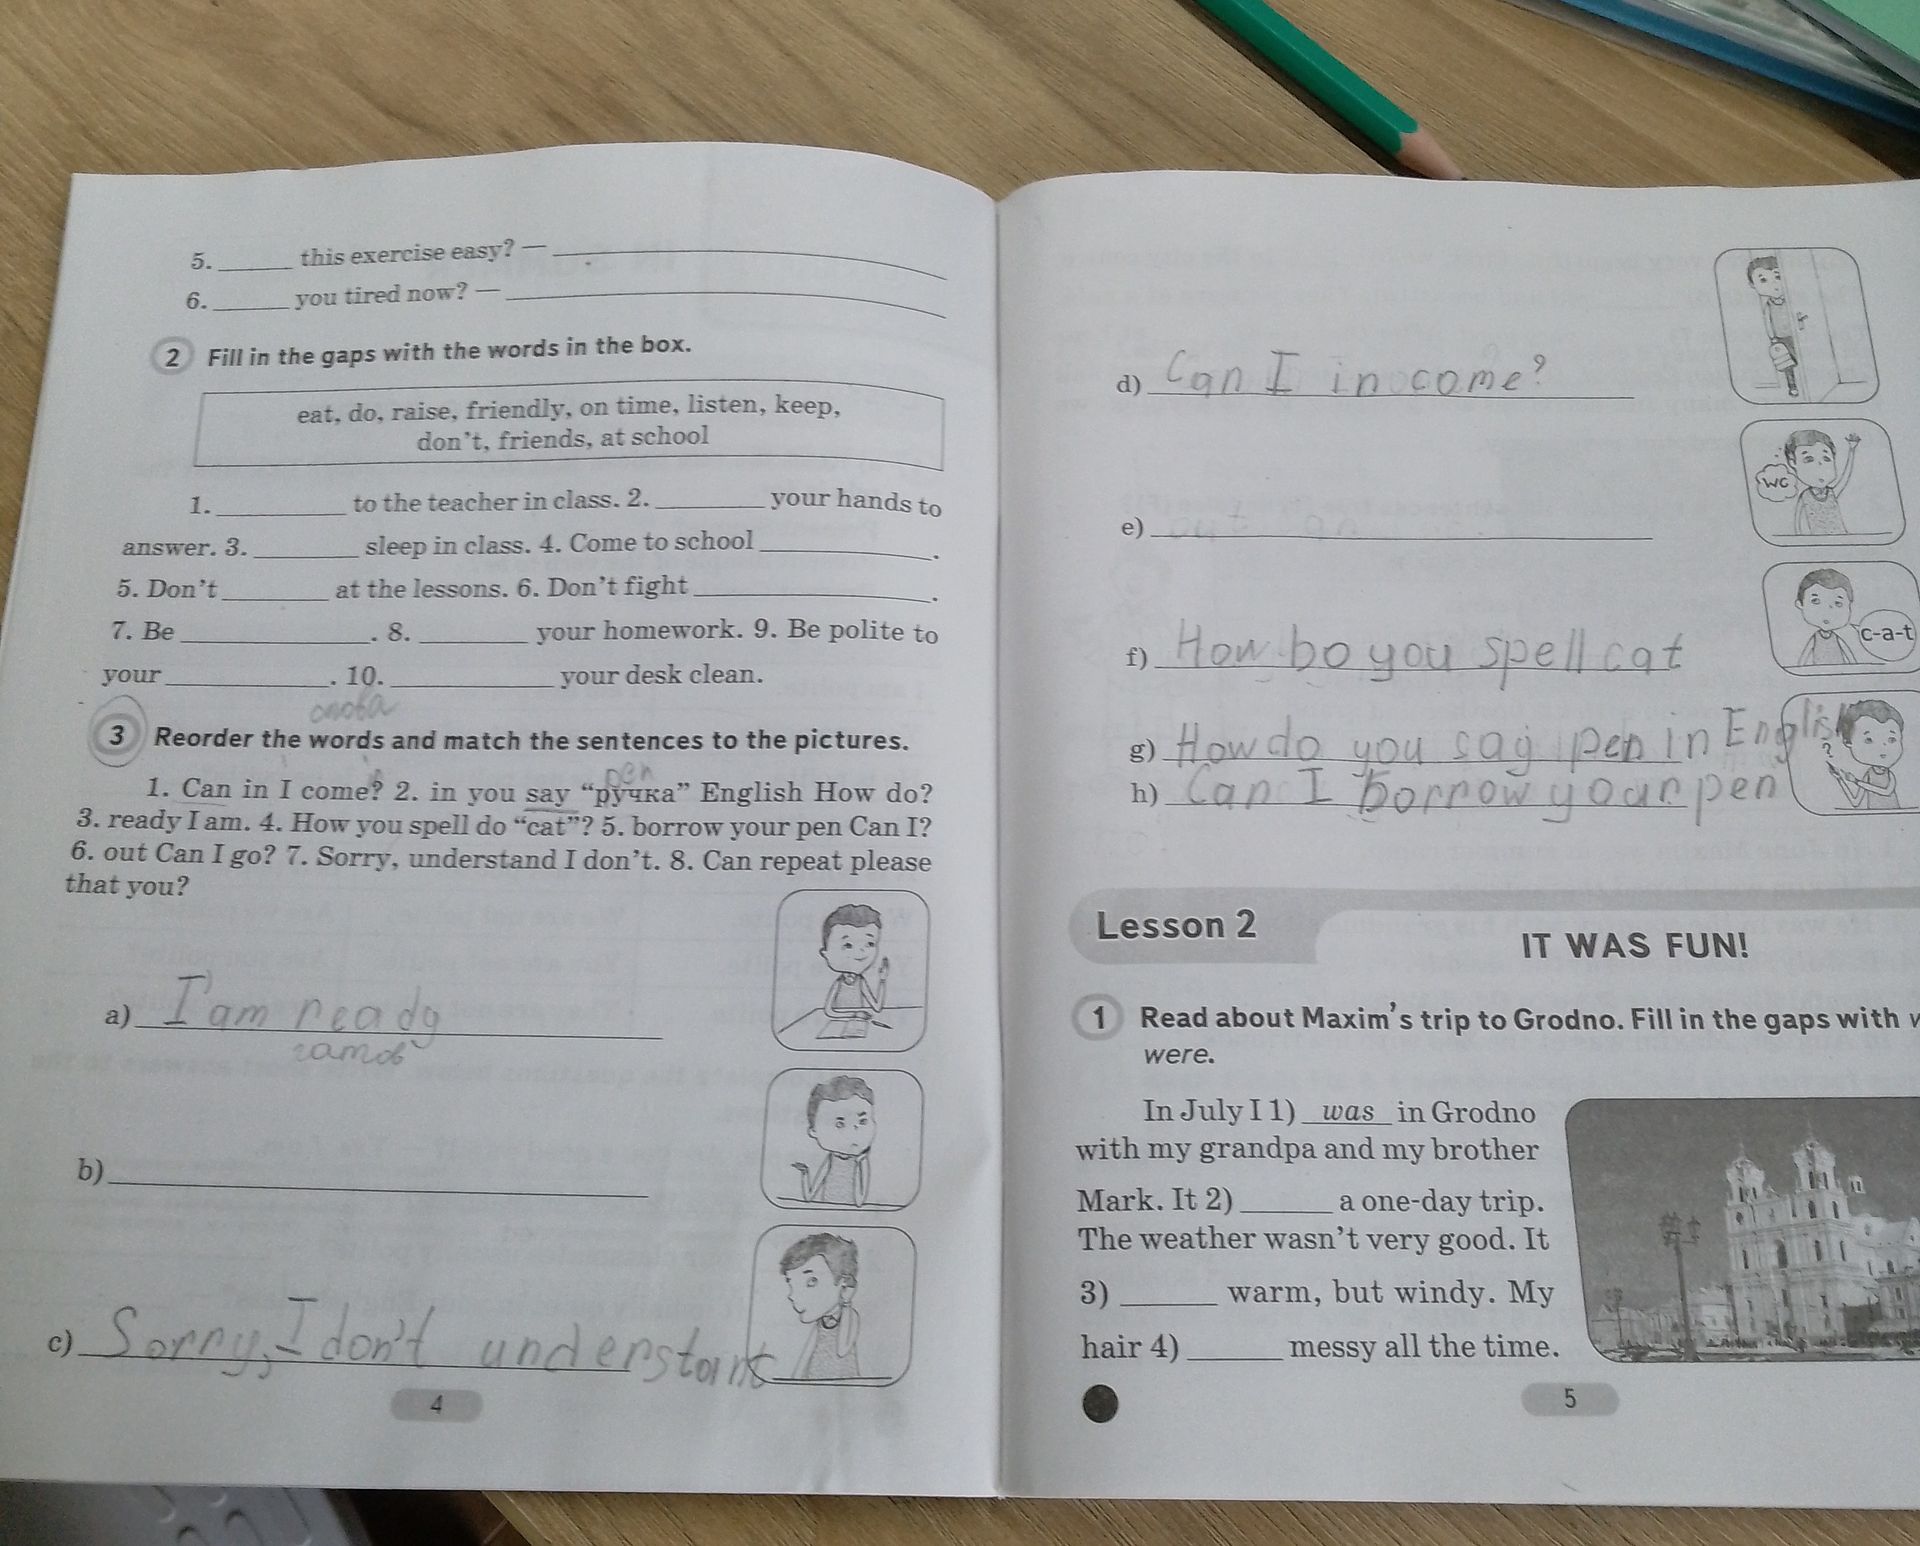 5. ______ this exercise easy? —
6. ______ you tired now? —
2 Fill in the gaps with the words in the box.
eat, do, raise, friendly, on time, listen, keep,
don't, friends, at school
1. ______ to the teacher in class. 2. ______ your hands to
answer. 3. ______ sleep in class. 4. Come to school ______.
5. Don't ______ at the lessons. 6. Don't fight ______.
7. Be ______. 8. ______ your homework. 9. Be polite to
your ______. 10. ______ your desk clean.
слова
3 Reorder the words and match the sentences to the pictures.
pen
1. Can in I come? 2. in you say “ручка” English How do?
3. ready I am. 4. How you spell do “cat”? 5. borrow your pen Can I?
6. out Can I go? 7. Sorry, understand I don't. 8. Can repeat please
that you?
a) I'am ready
готов
b)
c) Sorry, I don't understant
4
d) Can I in come?
WC
e)
f) How bo you spell cat
c-a-t
g) How do you say pen in English
?
h) Can I borrow your pen
Lesson 2
IT WAS FUN!
1 Read about Maxim's trip to Grodno. Fill in the gaps with
were.
In July I 1) was in Grodno
with my grandpa and my brother
Mark. It 2) ______ a one-day trip.
The weather wasn't very good. It
3) ______ warm, but windy. My
hair 4) ______ messy all the time.
5